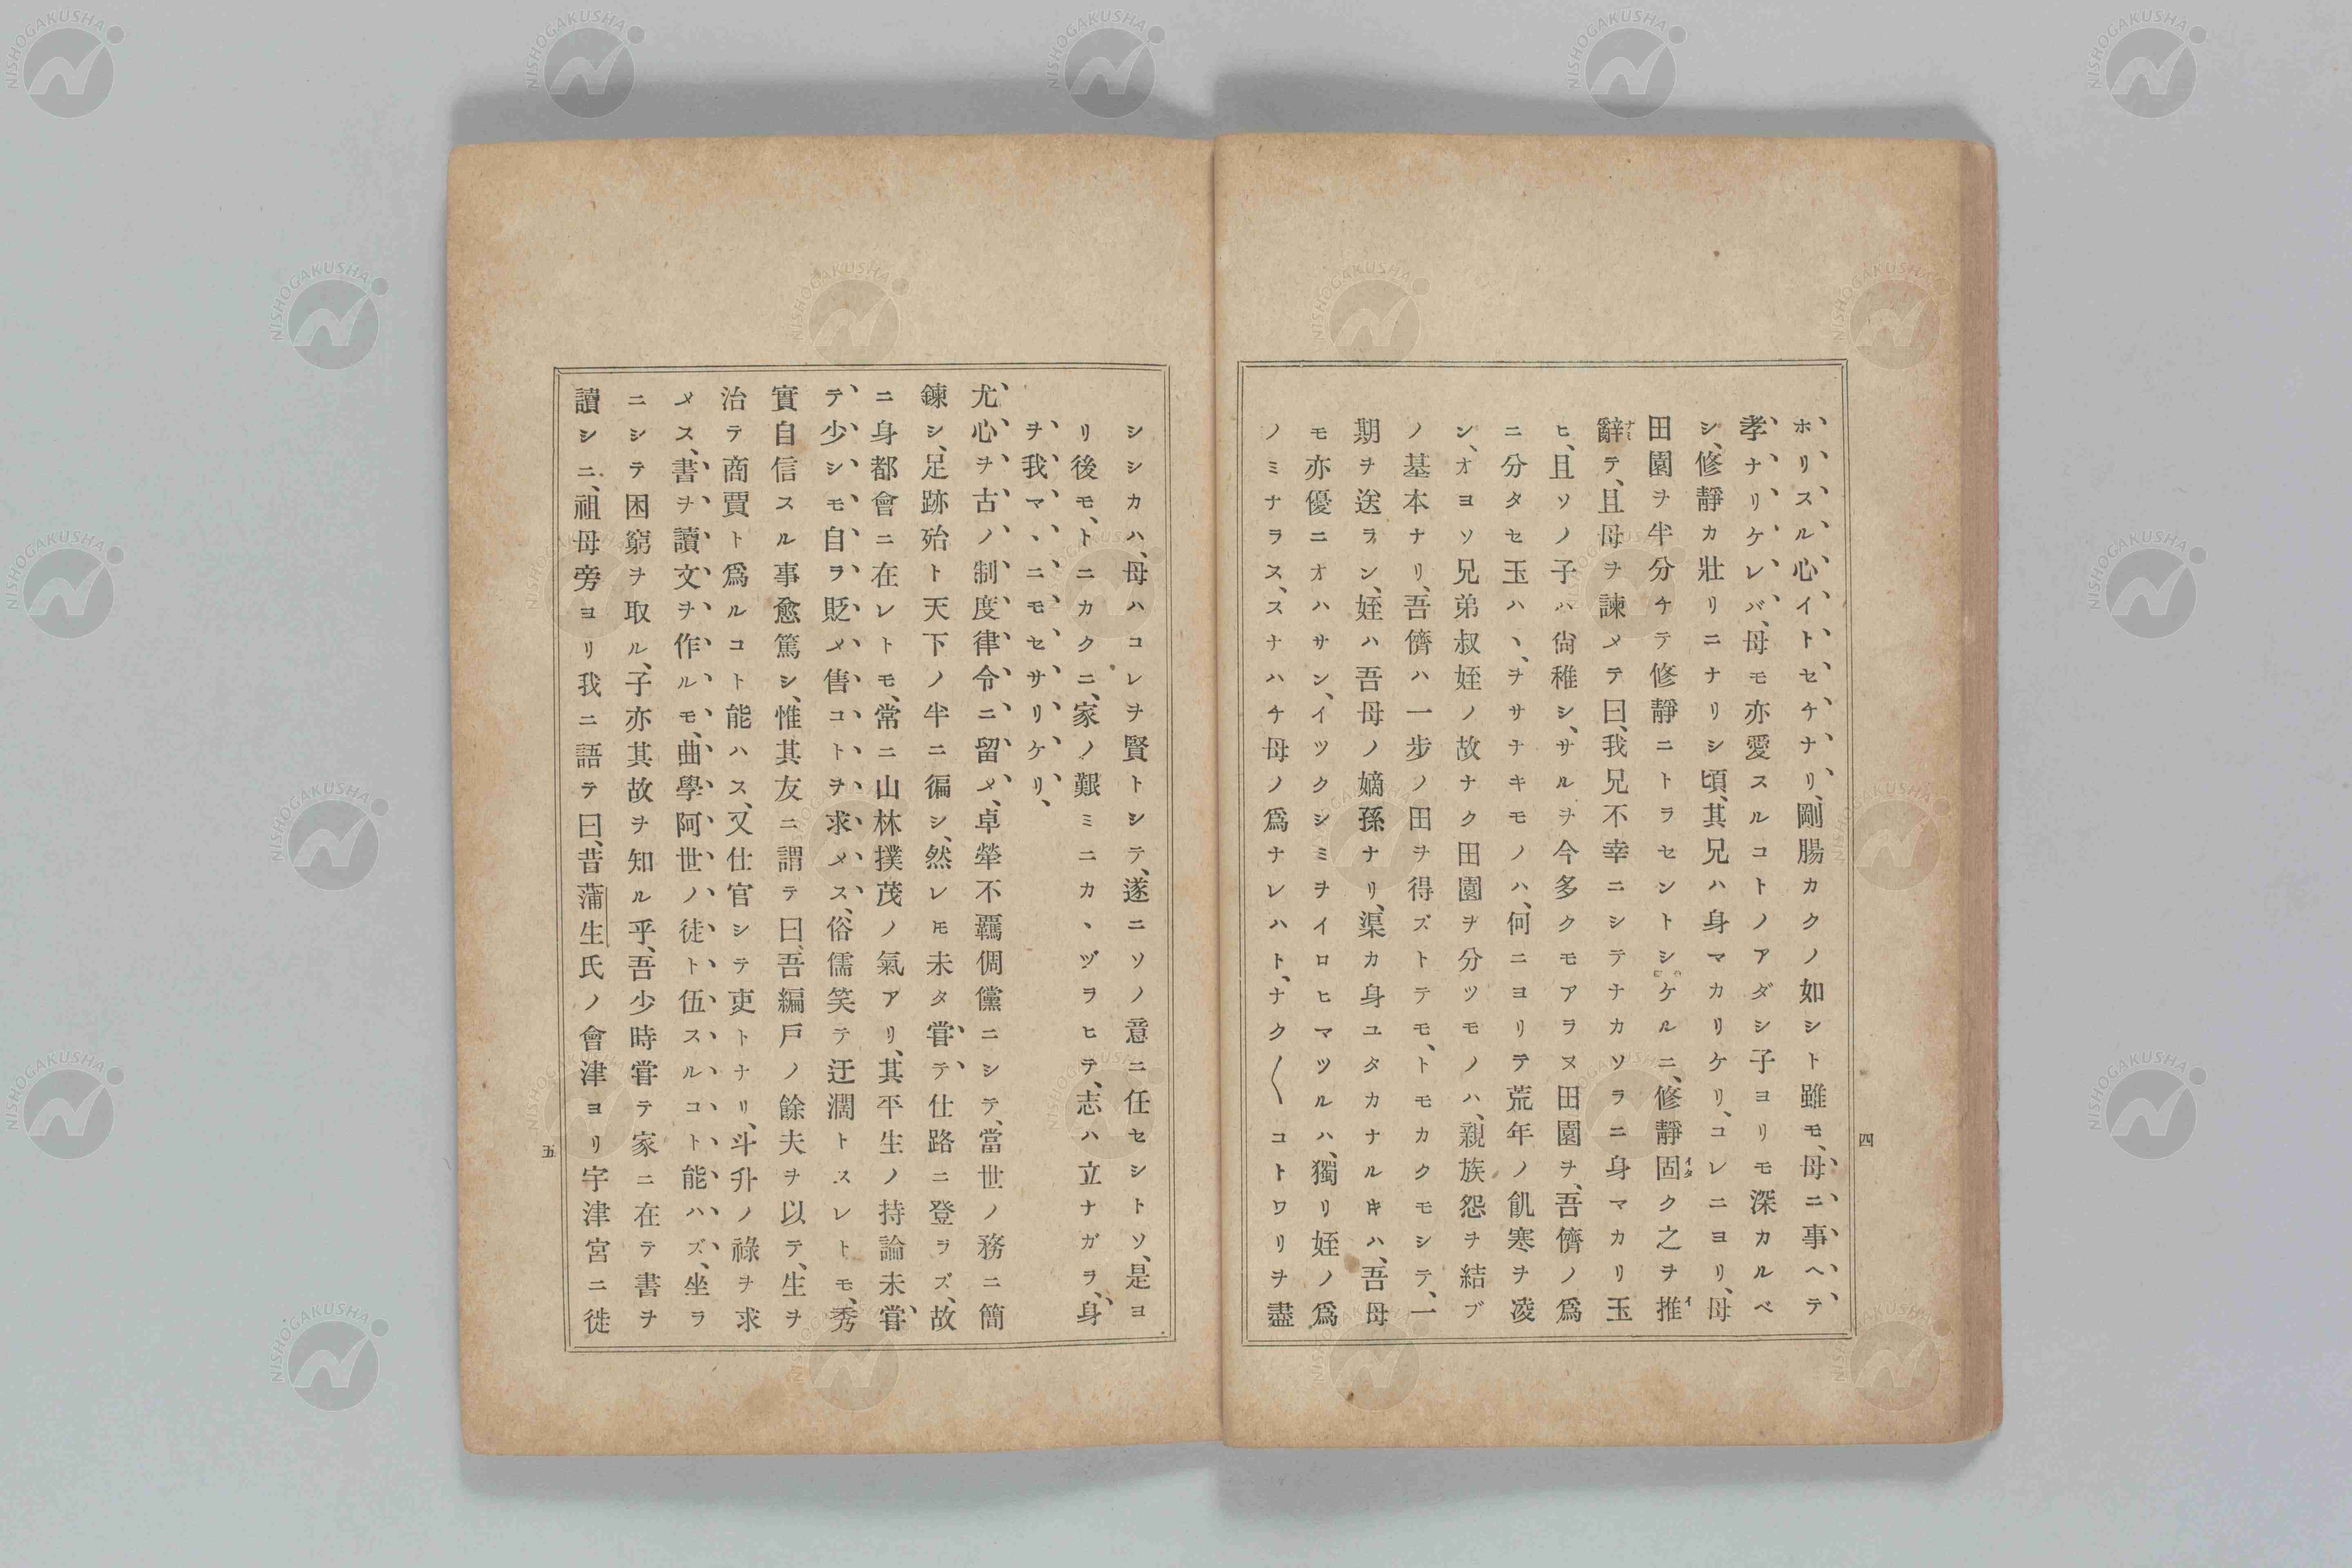 ホリスル心イトセチナリ、剛腸カクノ如シト雖モ、母ニ事ヘテ
孝ナリケレバ、母モ亦愛スルコトノアダシ子ヨリモ深カルベ
シ、修靜カ壯リニナリシ頃、其兄ハ身マカリケリ、コレニヨリ、母
田園ヲ半分ケテ修靜ニトラセントシケルニ、修靜固ク之ヲ推
辭テ、且母ヲ諫メテ曰、我兄不幸ニシテナカソラニ身マカリ玉
ヒ、且ソノ子ハ尙稚シ、サルヲ今多クモアラヌ田園ヲ、吾儕ノ爲
ニ分タセ玉ハヽ、ヲサナキモノハ、何ニヨリテ荒年ノ飢寒ヲ凌
ン、オヨソ兄弟叔姪ノ故ナク田園ヲ分ツモノハ、親族怨ヲ結ブ
ノ基本ナリ、吾儕ハ一步ノ田ヲ得ズトテモ、トモカクモシテ、一
期ヲ送ラン、姪ハ吾母ノ嫡孫ナリ、渠カ身ユタカナルキハ、吾母
モ亦優ニオハサン、イツクシミヲイロヒマツルハ、獨リ姪ノ爲
ノミナラス、スナハチ母ノ爲ナレハト、ナク〱コトワリヲ盡
四
シシカハ、母ハコレヲ賢トシテ、遂ニソノ意ニ任セシトソ、是ヨ
リ後モ、トニカクニ、家ノ艱ミニカヽヅラヒテ、志ハ立ナガラ、身
ヲ我マヽニモセサリケリ、
尤心ヲ古ノ制度律令ニ留メ、卓犖不羈倜儻ニシテ、當世ノ務ニ簡
鍊シ、足跡殆ト天下ノ半ニ徧シ、然レㇳモ未タ甞テ仕路ニ登ラズ、故
ニ身都會ニ在レトモ、常ニ山林撲茂ノ氣アリ、其平生ノ持論未甞
テ少シモ自ラ貶メ售コトヲ求メス、俗儒笑テ迂濶トスレトモ、秀
實自信スル事愈篤シ、惟其友ニ謂テ曰、吾編戶ノ餘夫ヲ以テ、生ヲ
治テ商賈ト爲ルコト能ハス、又仕官シテ吏トナリ、斗升ノ祿ヲ求
メス、書ヲ讀文ヲ作ルモ、曲學阿世ノ徒ト伍スルコト能ハズ、坐ラ
ニシテ困窮ヲ取ル、子亦其故ヲ知ル乎、吾少時甞テ家ニ在テ書ヲ
讀シニ、祖母旁ヨリ我ニ語テ曰、昔蒲生氏ノ會津ヨリ宇津宮ニ徙
五